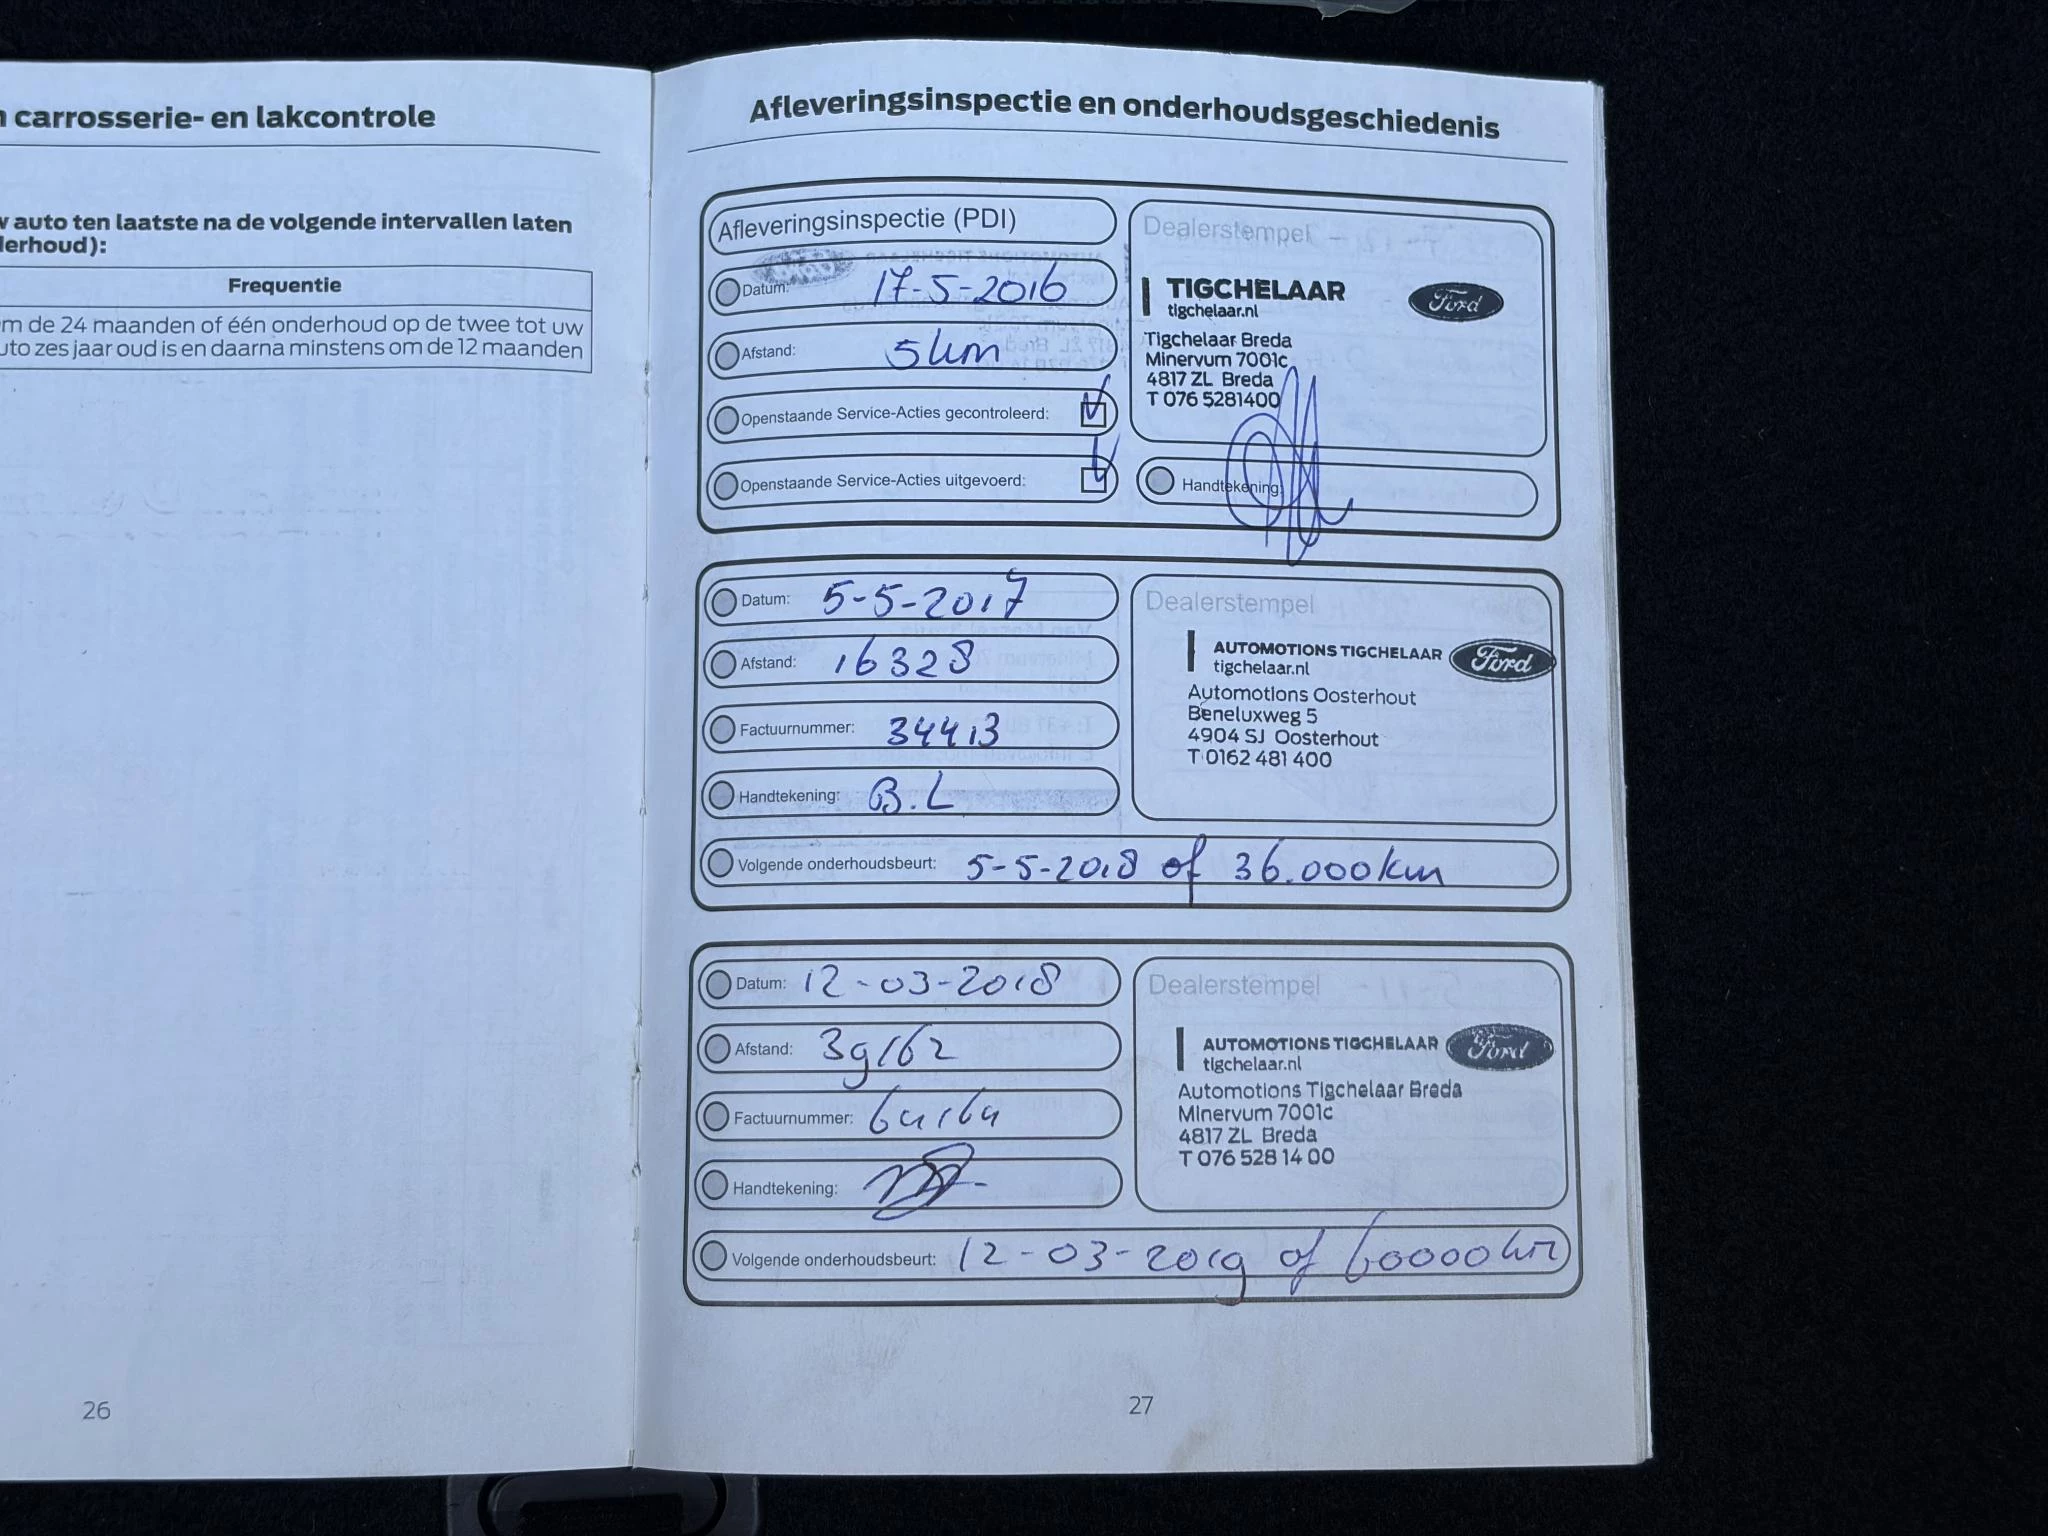 carrosserie- en lakcontrole
auto ten laatste na de volgende intervallen laten
derhoud):
Frequentie
m de 24 maanden of één onderhoud op de twee tot uw
uto zes jaar oud is en daarna minstens om de 12 maanden
26
Afleveringsinspectie en onderhoudsgeschiedenis
Afleveringsinspectie (PDI)
Datum: 17-5-2016
Afstand: 5 km
Openstaande Service-Acties gecontroleerd:
Openstaande Service-Acties uitgevoerd:
Dealerstempel
TIGCHELAAR
tigchelaar.nl
Ford
Tigchelaar Breda
Minervum 7001c
4817 ZL Breda
T 076 5281400
Handtekening:
Datum: 5-5-2017
Afstand: 16328
Factuurnummer: 34413
Handtekening: B.L
Dealerstempel
AUTOMOTIONS TIGCHELAAR
tigchelaar.nl
Ford
Automotions Oosterhout
Beneluxweg 5
4904 SJ Oosterhout
T 0162 481 400
Volgende onderhoudsbeurt: 5-5-2018 of 36.000km
Datum: 12-03-2018
Afstand: 39162
Factuurnummer: 64164
Handtekening:
Dealerstempel
AUTOMOTIONS TIGCHELAAR
tigchelaar.nl
Ford
Automotions Tigchelaar Breda
Minervum 7001c
4817 ZL Breda
T 076 528 14 00
Volgende onderhoudsbeurt: 12-03-2019 of 60000km
27